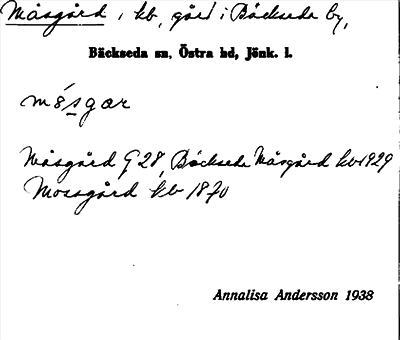 Måsgård, kb, gård i Bäckseda by,
Bäckseda sn, Östra hd, Jönk. l.
måsgar
Måsgård G 28, Bäckseda Måsgård kb 1929
Mossgård kb 1870
Annalisa Andersson 1938